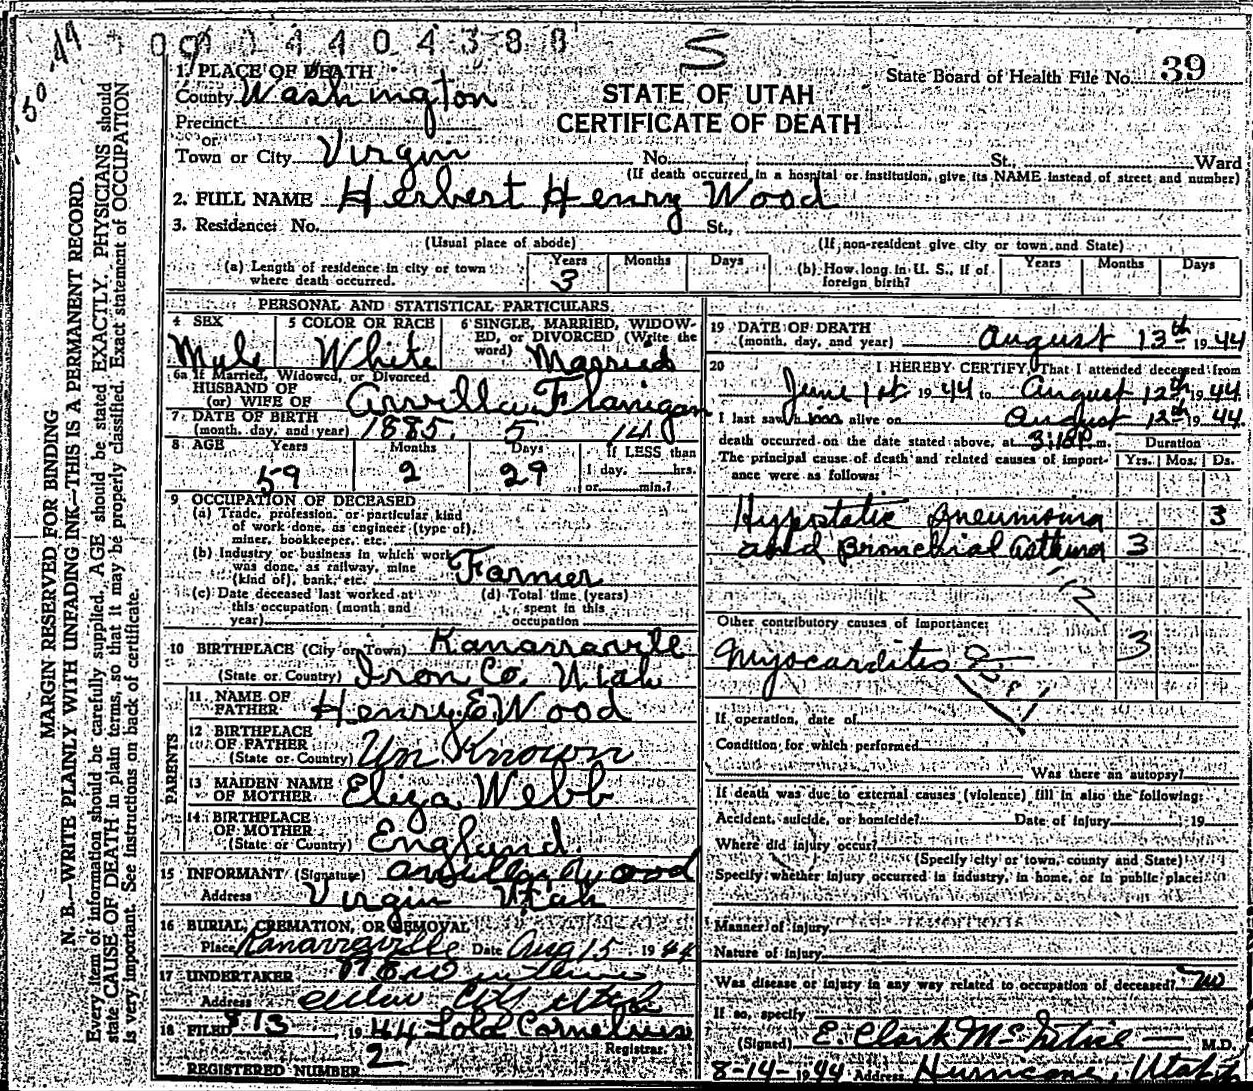 S
State Board of Health File No. 39
1. PLACE OF DEATH
County Washington
STATE OF UTAH
CERTIFICATE OF DEATH
Precinct
or
Town or City Virgin No. St., Ward
(If death occurred in a hospital or institution, give its NAME instead of street and number)
2. FULL NAME Herbert Henry Wood
3. Residence: No. St.,
(Usual place of abode) (If non-resident give city or town and State)
(a) Length of residence in city or town where death occurred. Years 3 Months Days
(b) How long in U. S., if of foreign birth? Years Months Days
PERSONAL AND STATISTICAL PARTICULARS.
4 SEX Male
5 COLOR OR RACE White
6 SINGLE, MARRIED, WIDOWED, or DIVORCED (Write the word) Married
6a If Married, Widowed, or Divorced
HUSBAND OF
(or) WIFE OF Arvilla Flanigan
7. DATE OF BIRTH
(month, day, and year) 1885. 5 14
8 AGE Years 59 Months 2 Days 29 If LESS than
1 day, hrs.
or min.?
9 OCCUPATION OF DECEASED
(a) Trade, profession, or particular kind
of work done, as engineer (type of),
miner, bookkeeper, etc.
(b) Industry or business in which work
was done, as railway, mine
(kind of), bank, etc. Farmer
(c) Date deceased last worked at
this occupation (month and
year)
(d) Total time (years)
spent in this
occupation
10 BIRTHPLACE (City or Town) Kanarraville
(State or Country) Iron Co. Utah
PARENTS
11 NAME OF
FATHER Henry E Wood
12 BIRTHPLACE
OF FATHER
(State or Country) Un Known
13 MAIDEN NAME
OF MOTHER Eliza Webb
14 BIRTHPLACE
OF MOTHER
(State or Country) England.
15 INFORMANT (Signature) Arvilla Wood
Address Virgin Utah
16 BURIAL, CREMATION, OR REMOVAL
Place Kanarraville Date Aug 15 1944
17 UNDERTAKER
Address Cedar City Utah
18 FILED 8 13 1944 Lola Cornelius
Registrar.
REGISTERED NUMBER 2
19 DATE OF DEATH
(month, day, and year) August 13th 1944
20 I HEREBY CERTIFY, That I attended deceased from
June 1st 1944 to August 12th 1944
I last saw him alive on August 12th 1944.
death occurred on the date stated above, at 3:18 P.m.
The principal cause of death and related causes of importance were as follows:
Duration
Yrs. Mos. Ds.
Hypostatic Pneumonia 3
and Bronchial Asthma 3
112
Other contributory causes of importance:
Myocarditis 3
If operation, date of
Condition for which performed
Was there an autopsy?
If death was due to external causes (violence) fill in also the following:
Accident, suicide, or homicide? Date of injury 19
Where did injury occur?
(Specify city or town, county and State)
Specify whether injury occurred in industry, in home, or in public place:
Manner of injury
Nature of injury
Was disease or injury in any way related to occupation of deceased? No
If so, specify
(Signed) E. Clark McIntire M.D.
8-14-1944 Address Hurricane, Utah
MARGIN RESERVED FOR BINDING
N. B.—WRITE PLAINLY WITH UNFADING INK—THIS IS A PERMANENT RECORD.
Every item of information should be carefully supplied. AGE should be stated EXACTLY. PHYSICIANS should
state CAUSE OF DEATH in plain terms, so that it may be properly classified. Exact statement of OCCUPATION
is very important. See instructions on back of certificate.